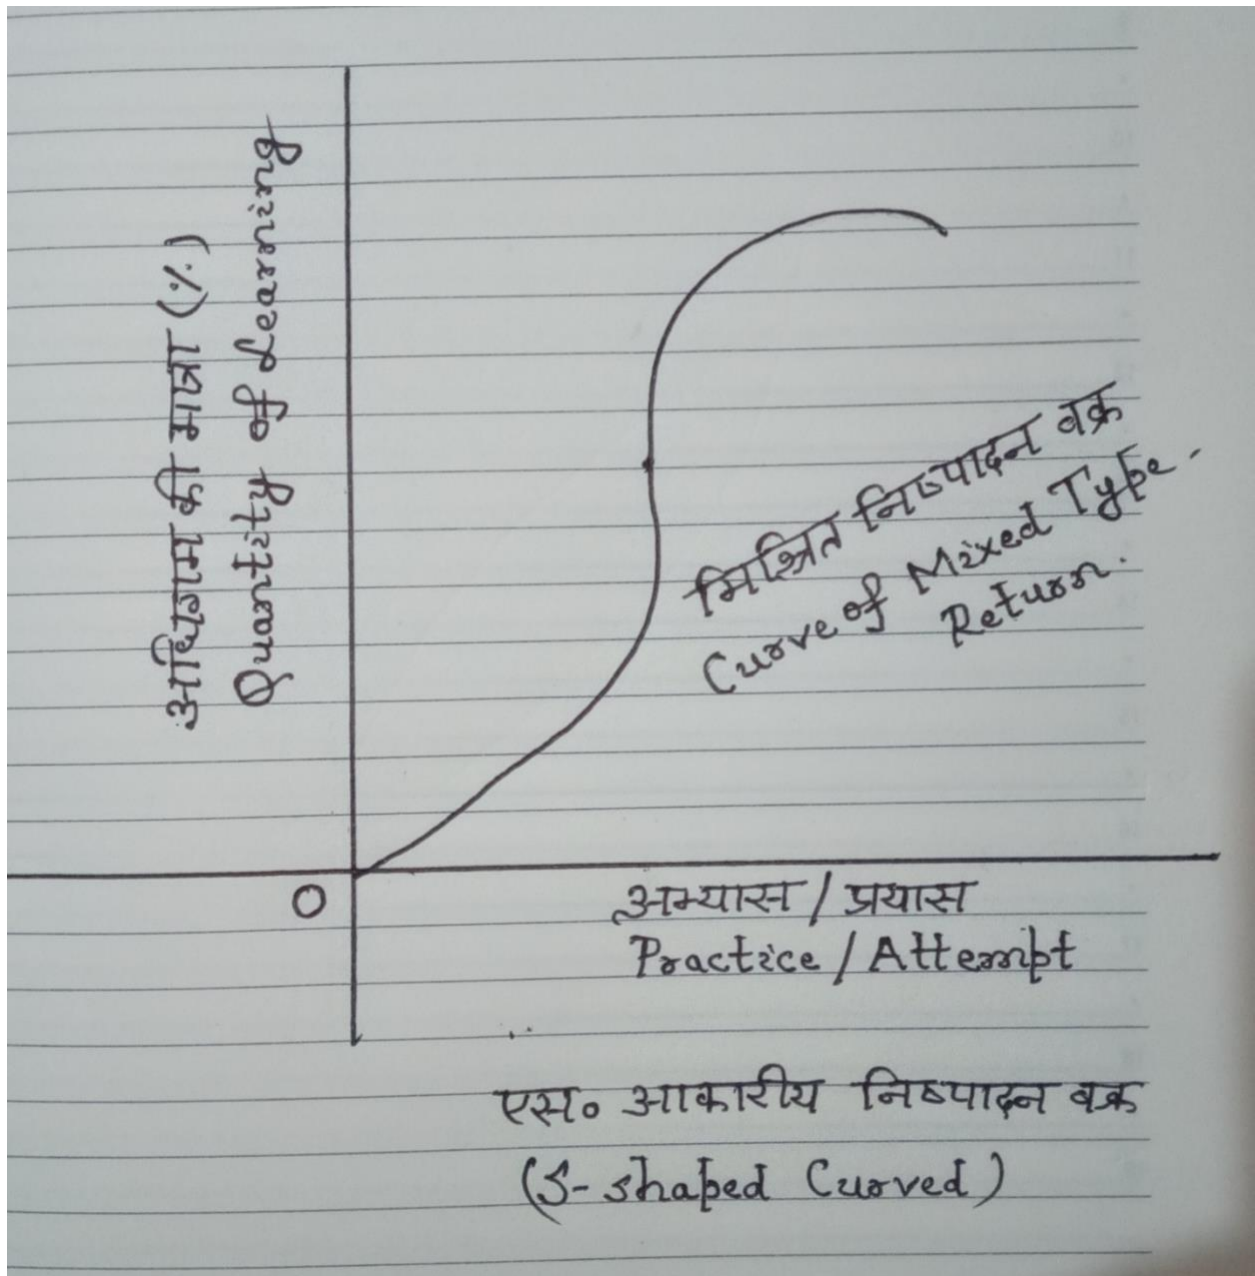 अधिगम की मात्रा (%)
Quantity of Learning
मिश्रित निष्पादन वक्र
Curve of Mixed Type
Return.
O
अभ्यास / प्रयास
Practice / Attempt
एस० आकारीय निष्पादन वक्र
(S-shaped Curved)